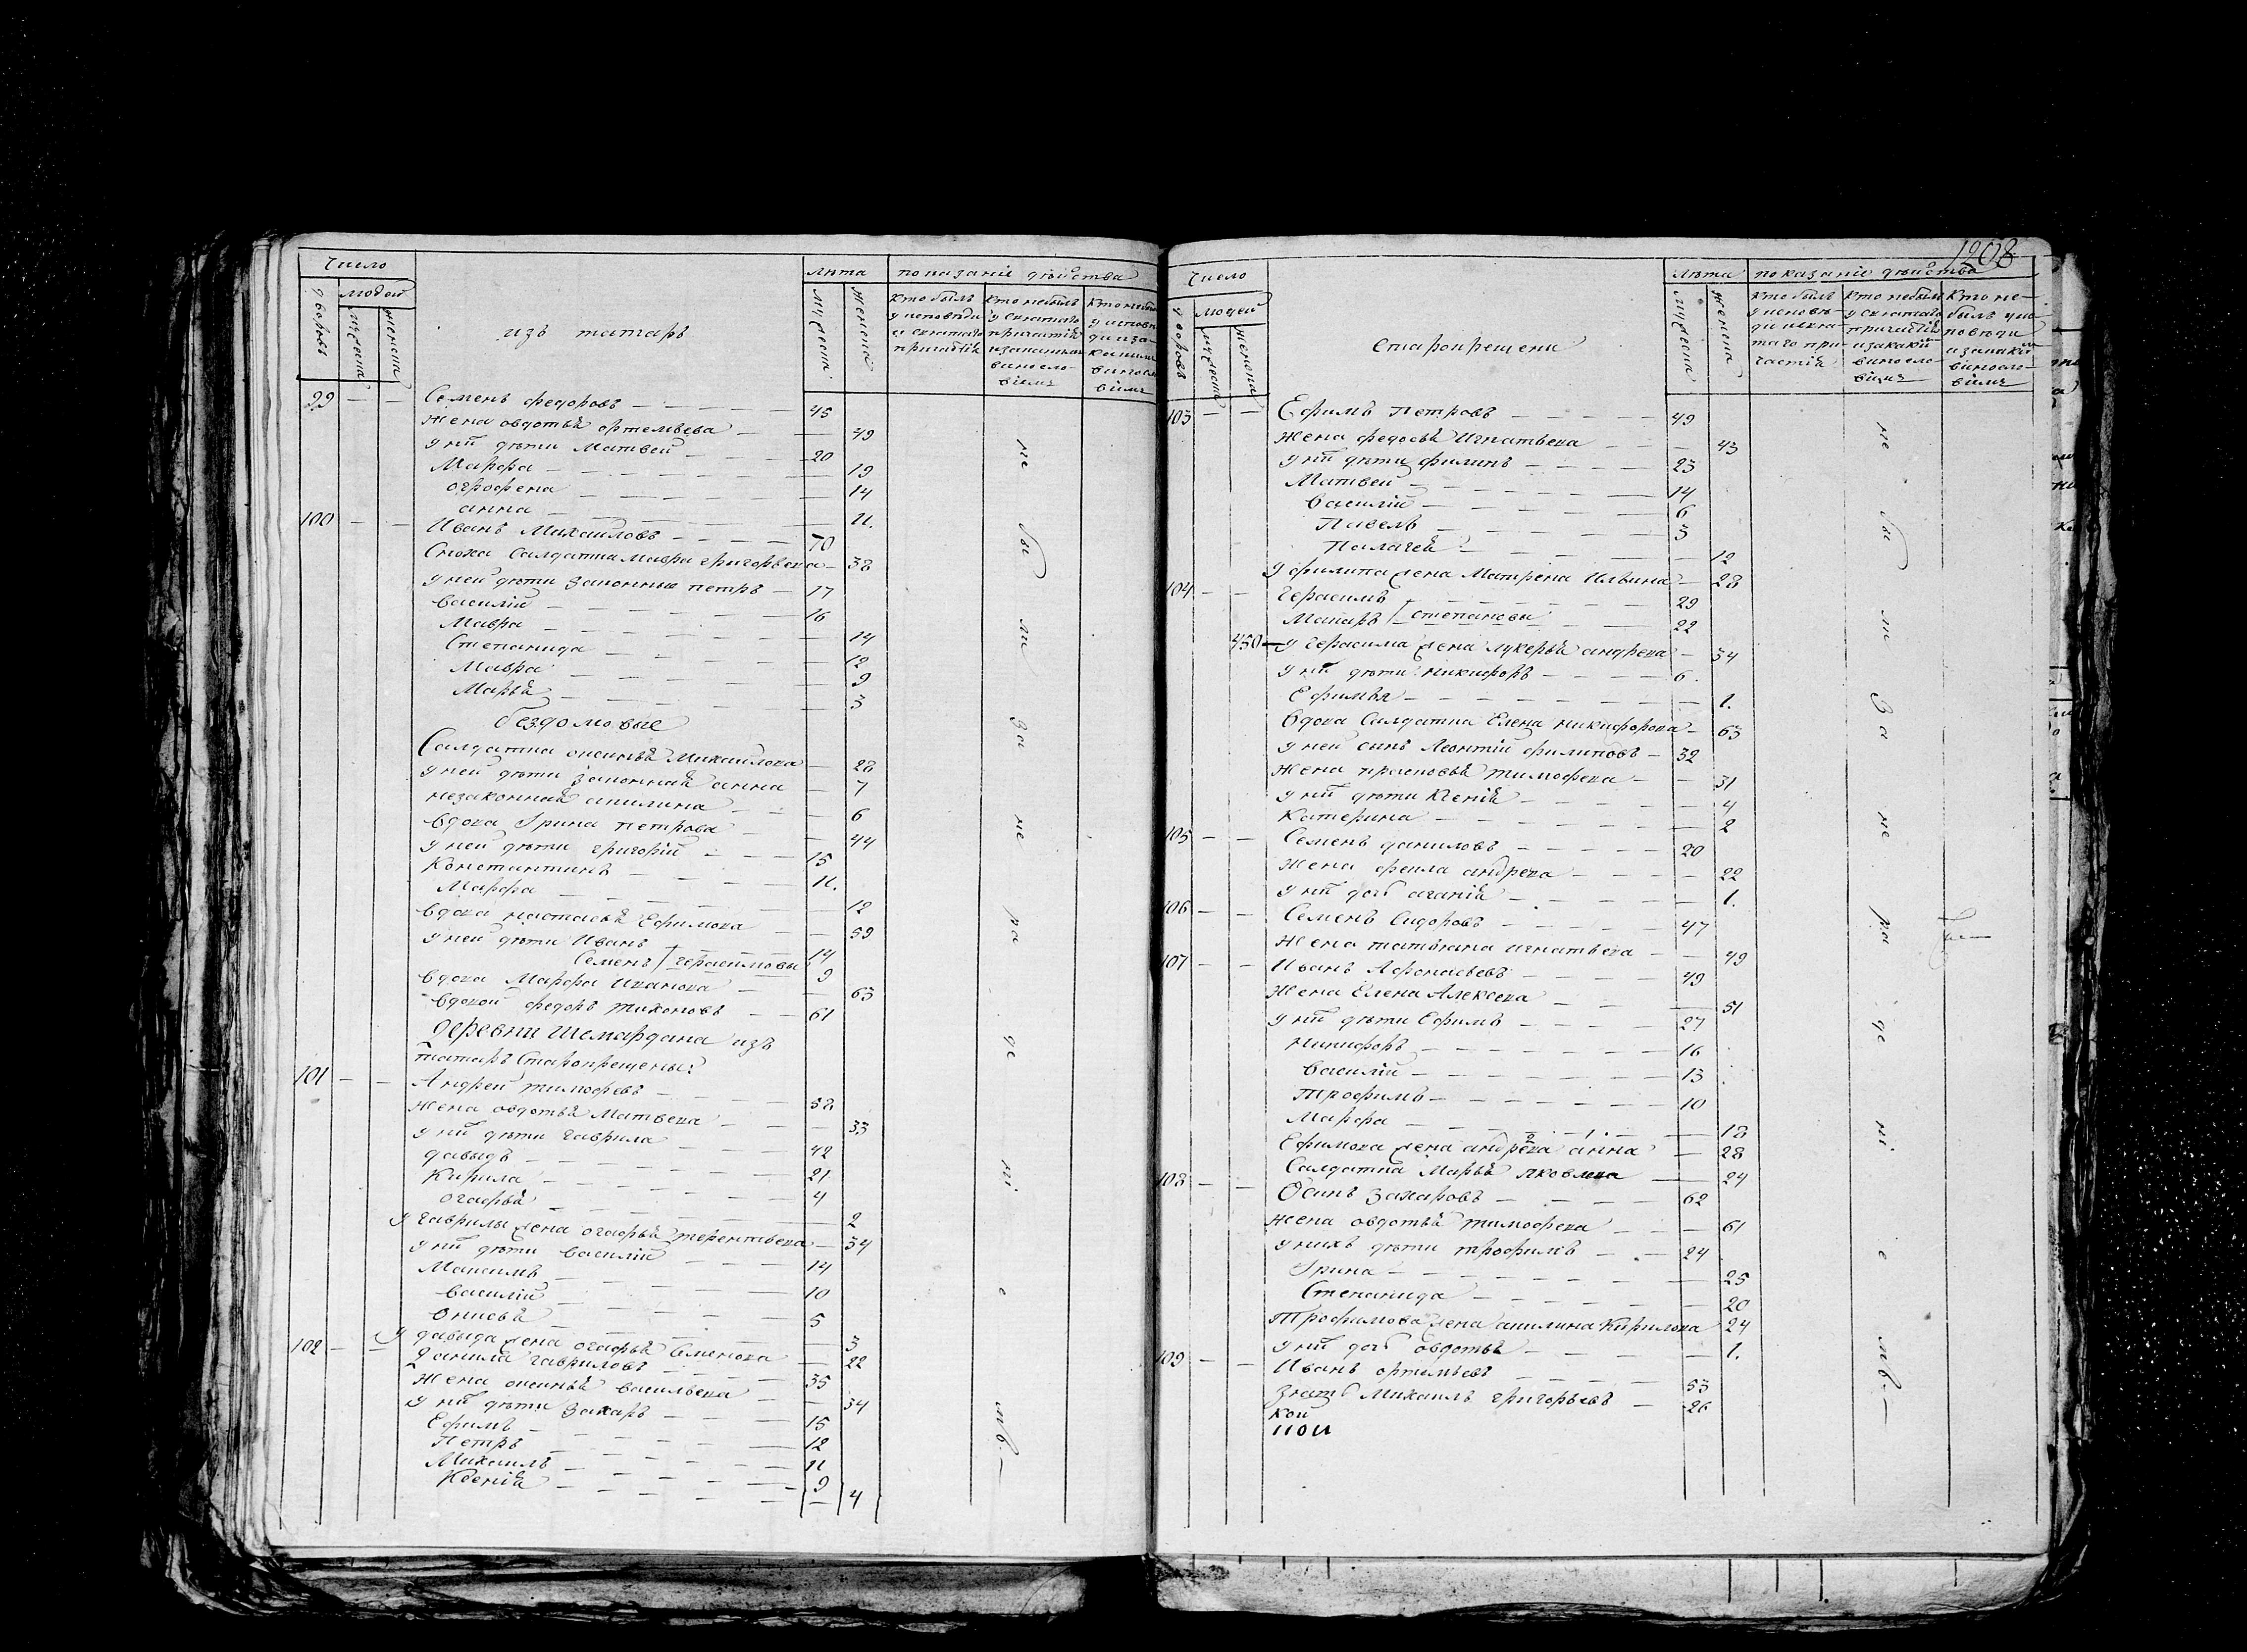 Число
людей
дворовъ
мужеска
женска
изъ татаръ
лѣта
мужеска
женска
показаніе дѣйства
кто былъ у исповѣди и святаго причастія
кто небылъ у святаго причастія
кто небылъ у исповѣди
99 — — Семенъ федоровъ — 45
жена овдотья ортемьева — 49
у нй дѣти Матвей — 20
Марфа — 19
огрофена — 14
анна — 11.
100 — — Иванъ Михаиловъ — 70
Сноха Салдатка мавра григорьева — 38
у ней дѣти законные петръ — 17
василій — 16
Мавра — 14
Степанида — 12
Мавра — 9
Марья — 3
бездомовые
Салдатка оксинья Михаилова — 28
у ней дѣти законная анна — 7
незаконная акилина — 6
вдова Ирина петрова — 44
у ней дѣти григорій — 15
Константинъ — 11.
Марфа — 12
вдова настасья Ефимова — 59
у ней дѣти Иванъ — 14
Семенъ герасимовы 9
вдова Марфа Иванова — 63
вдовой федоръ тихоновъ — 61
деревни Шемардана изъ
татаръ Старокрещены:
101 — — Андрей тимофевъ — 58
жена овдотья Матвева — 33
у нй дѣти гаврила — 42
давыдъ — 21
Кирила — 4
огафья — 2
у гаврилы жена огафья терентьева — 34
у нй дѣти василій — 14
Максимъ — 10
василій — 5
онисья — 3
у давыда жена огафья Семенова — 22
102 — — данила гавриловъ — 35
жена оксинья васильева — 34
у нй дѣти Захаръ — 15
Ефимъ — 12
Петръ — 11
Михаилъ — 9
Ксенія — 4
не бы ли за не ра де ні е мъ —
1208
Число
людей
дворовъ
мужеска
женска
старокрещены
лѣта
мужеска
женска
показаніе дѣйства
кто былъ у исповѣди и святаго причастія
кто небылъ у святаго причастія и за какимъ винословіемъ
кто небылъ у исповѣди и за какимъ винословіемъ
103 — — Ефимъ Петровъ — 49
жена федосья Игнатьева — 43
у нй дѣти филипъ — 23
Матвей — 14
василій — 6
Павелъ — 3
Палагея — 12
у филипа жена Матрена Ильина — 28
104 — — герасимъ — 29
Макаръ степановы 22
450 — у герасима жена лукерья андрева — 34
у нй дѣти никифоръ — 6.
Ефимья — 1.
вдова Салдатка Елена никифорова — 63
у ней сынъ Леонтій филиповъ — 32
жена прасковья тимофева — 31
у нй дѣти Ксенія — 4
Катерина — 2
105 — — Семенъ даниловъ — 20
жена фекла андрева — 22
у нй дочь аганія — 1.
106 — — Семенъ Сидоровъ — 47
жена татьяна игнатьева — 49
107 — — Иванъ Афонасьевъ — 49
жена Елена Алексева — 51
у нй дѣти Ефимъ — 27
никифоръ — 16
василій — 13
трофимъ — 10
Марфа — 18
Ефимова жена андрева анна — 28
Салдатка Марья яковлева — 24
108 — — Осипъ захаровъ — 62
жена овдотья тимофева — 61
у нихъ дѣти трофимъ — 24
Ирина — 25
Степанида — 20
Трофимова жена акилина Кирилова 24
у нй дочь овдотья — 1.
109 — — Иванъ ортемьевъ — 53
зять Михаилъ григорьевъ — 26
не бы ли за не ра де ні е мъ —